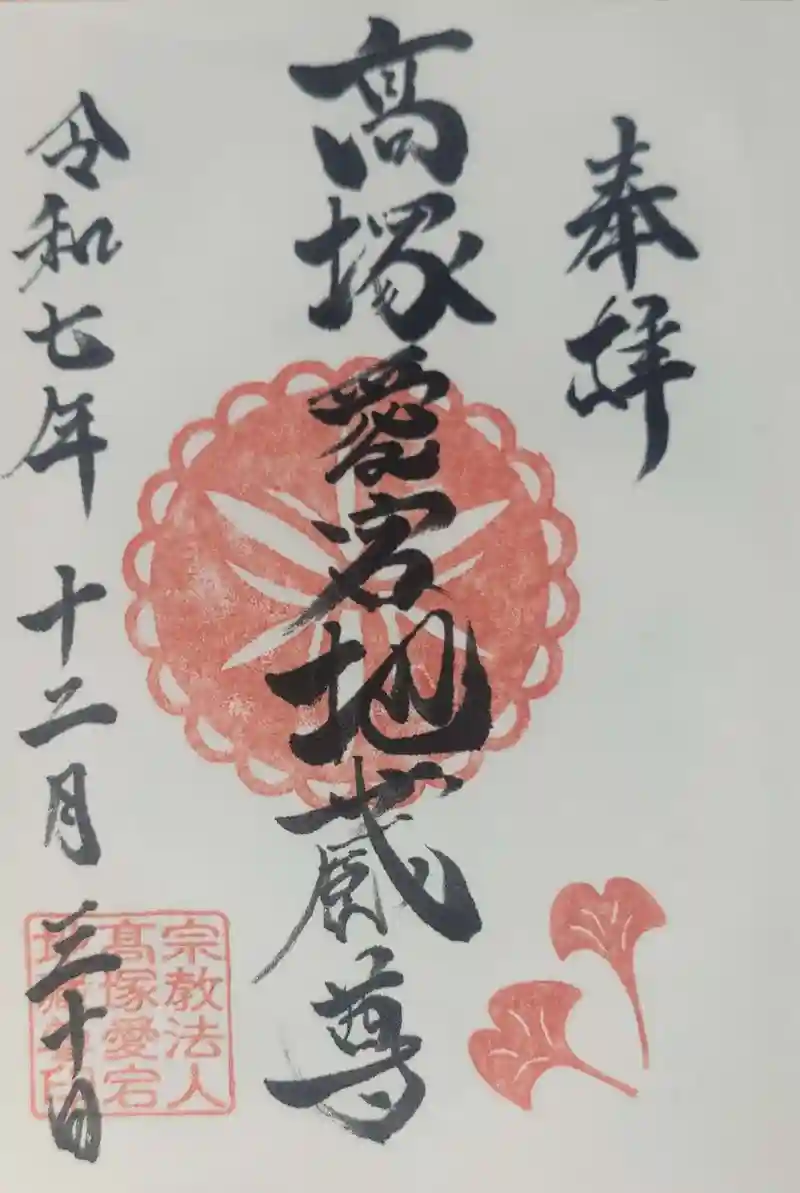 奉拝
髙塚愛宕地蔵尊
令和七年 十二月 三十日
宗教法人
髙塚愛宕
地蔵尊印